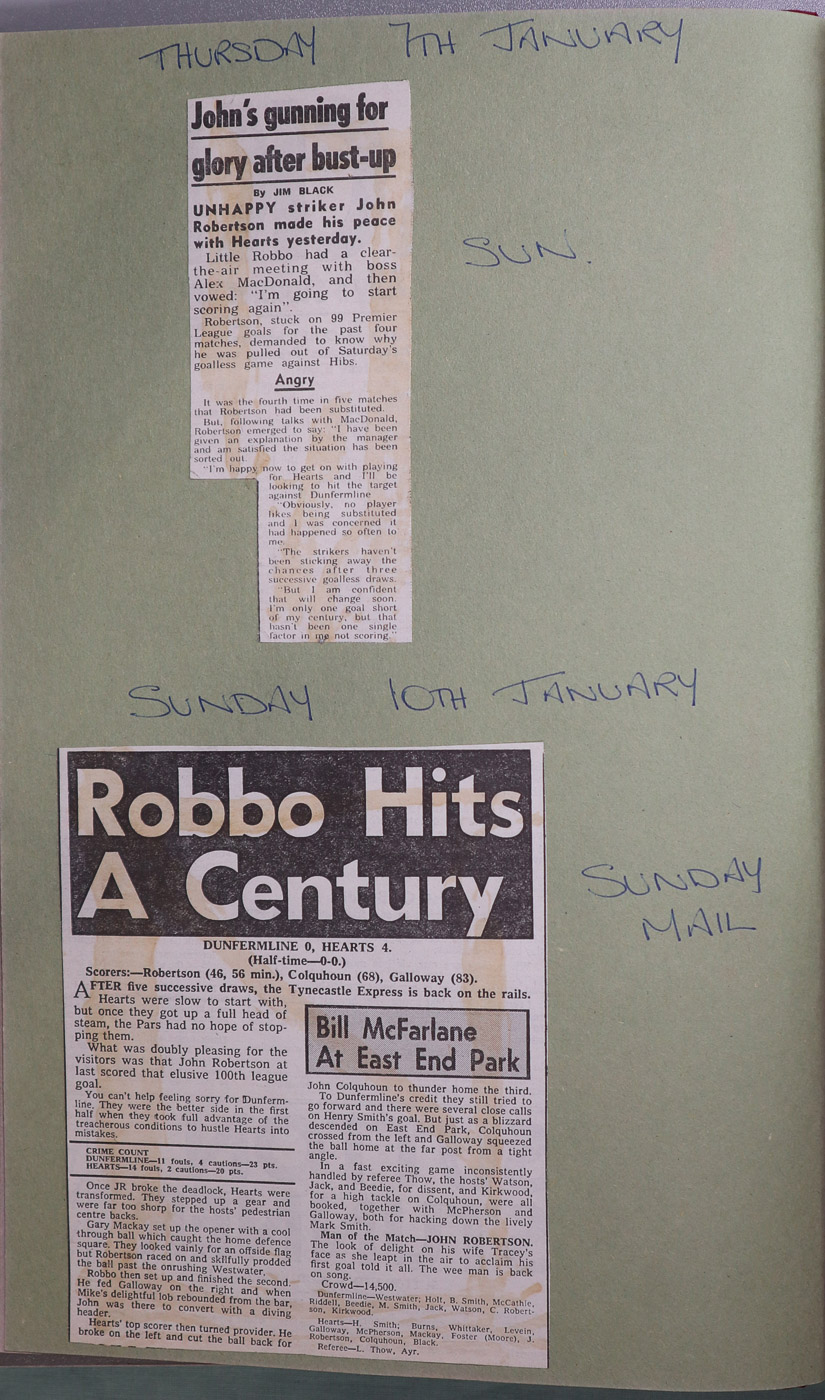 THURSDAY 7TH JANUARY
John's gunning for
glory after bust-up
By JIM BLACK
UNHAPPY striker John
Robertson made his peace
with Hearts yesterday.
Little Robbo had a clear-
the-air meeting with boss
Alex MacDonald, and then
vowed: "I'm going to start
scoring again".
Robertson, stuck on 99 Premier
League goals for the past four
matches, demanded to know why
he was pulled out of Saturday's
goalless game against Hibs.
Angry
It was the fourth time in five matches
that Robertson had been substituted.
But, following talks with MacDonald,
Robertson emerged to say: "I have been
given an explanation by the manager
and am satisfied the situation has been
sorted out.
"I'm happy now to get on with playing
for Hearts and I'll be
looking to hit the target
against Dunfermline
"Obviously, no player
likes being substituted
and I was concerned it
had happened so often to
me.
"The strikers haven't
been sticking away the
chances after three
successive goalless draws.
"But I am confident
that will change soon.
I'm only one goal short
of my century, but that
hasn't been one single
factor in me not scoring."
SUN.
SUNDAY 10TH JANUARY
Robbo Hits
A Century
SUNDAY
MAIL
DUNFERMLINE 0, HEARTS 4.
(Half-time—0-0.)
Scorers:—Robertson (46, 56 min.), Colquhoun (68), Galloway (83).
AFTER five successive draws, the Tynecastle Express is back on the rails.
Hearts were slow to start with,
but once they got up a full head of
steam, the Pars had no hope of stop-
ping them.
What was doubly pleasing for the
visitors was that John Robertson at
last scored that elusive 100th league
goal.
You can't help feeling sorry for Dunferm-
line. They were the better side in the first
half when they took full advantage of the
treacherous conditions to hustle Hearts into
mistakes.
CRIME COUNT
DUNFERMLINE—11 fouls, 4 cautions—23 pts.
HEARTS—14 fouls, 2 cautions—20 pts.
Once JR broke the deadlock, Hearts were
transformed. They stepped up a gear and
were far too shorp for the hosts' pedestrian
centre backs.
Gary Mackay set up the opener with a cool
through ball which caught the home defence
square. They looked vainly for an offside flag
but Robertson raced on and skilfully prodded
the ball past the onrushing Westwater.
Robbo then set up and finished the second.
He fed Galloway on the right and when
Mike's delightful lob rebounded from the bar,
John was there to convert with a diving
header.
Hearts' top scorer then turned provider. He
broke on the left and cut the ball back for
Bill McFarlane
At East End Park
John Colquhoun to thunder home the third.
To Dunfermline's credit they still tried to
go forward and there were several close calls
on Henry Smith's goal. But just as a blizzard
descended on East End Park, Colquhoun
crossed from the left and Galloway squeezed
the ball home at the far post from a tight
angle.
In a fast exciting game inconsistently
handled by referee Thow, the hosts' Watson,
Jack, and Beedie, for dissent, and Kirkwood,
for a high tackle on Colquhoun, were all
booked, together with McPherson and
Galloway, both for hacking down the lively
Mark Smith.
Man of the Match—JOHN ROBERTSON.
The look of delight on his wife Tracey's
face as she leapt in the air to acclaim his
first goal told it all. The wee man is back
on song.
Crowd—14,500.
Dunfermline—Westwater; Holt, B. Smith, McCathie,
Riddell, Beedie, M. Smith, Jack, Watson, C. Robert-
son, Kirkwood.
Hearts—H. Smith; Burns, Whittaker, Levein,
Galloway, McPherson, Mackay, Foster (Moore), J.
Robertson, Colquhoun, Black.
Referee—L. Thow, Ayr.